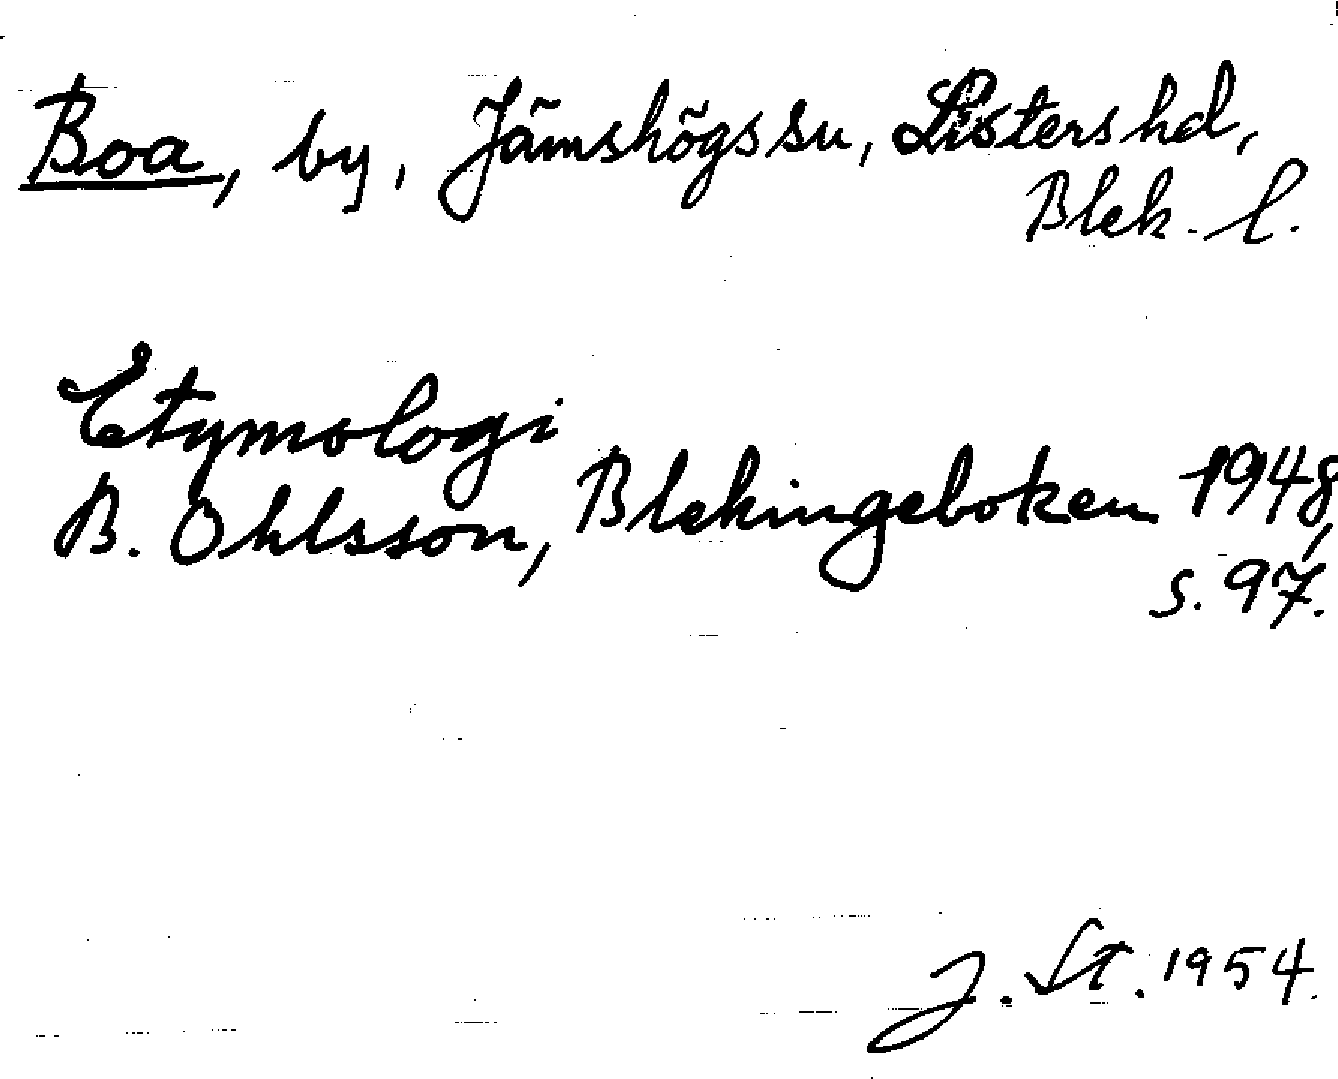 Boa, by, Jämshögs sn, Listers hd,
Blek. l.
Etymologi
B. Ohlsson, Blekingeboken 1948,
s. 97.
J. St. 1954.